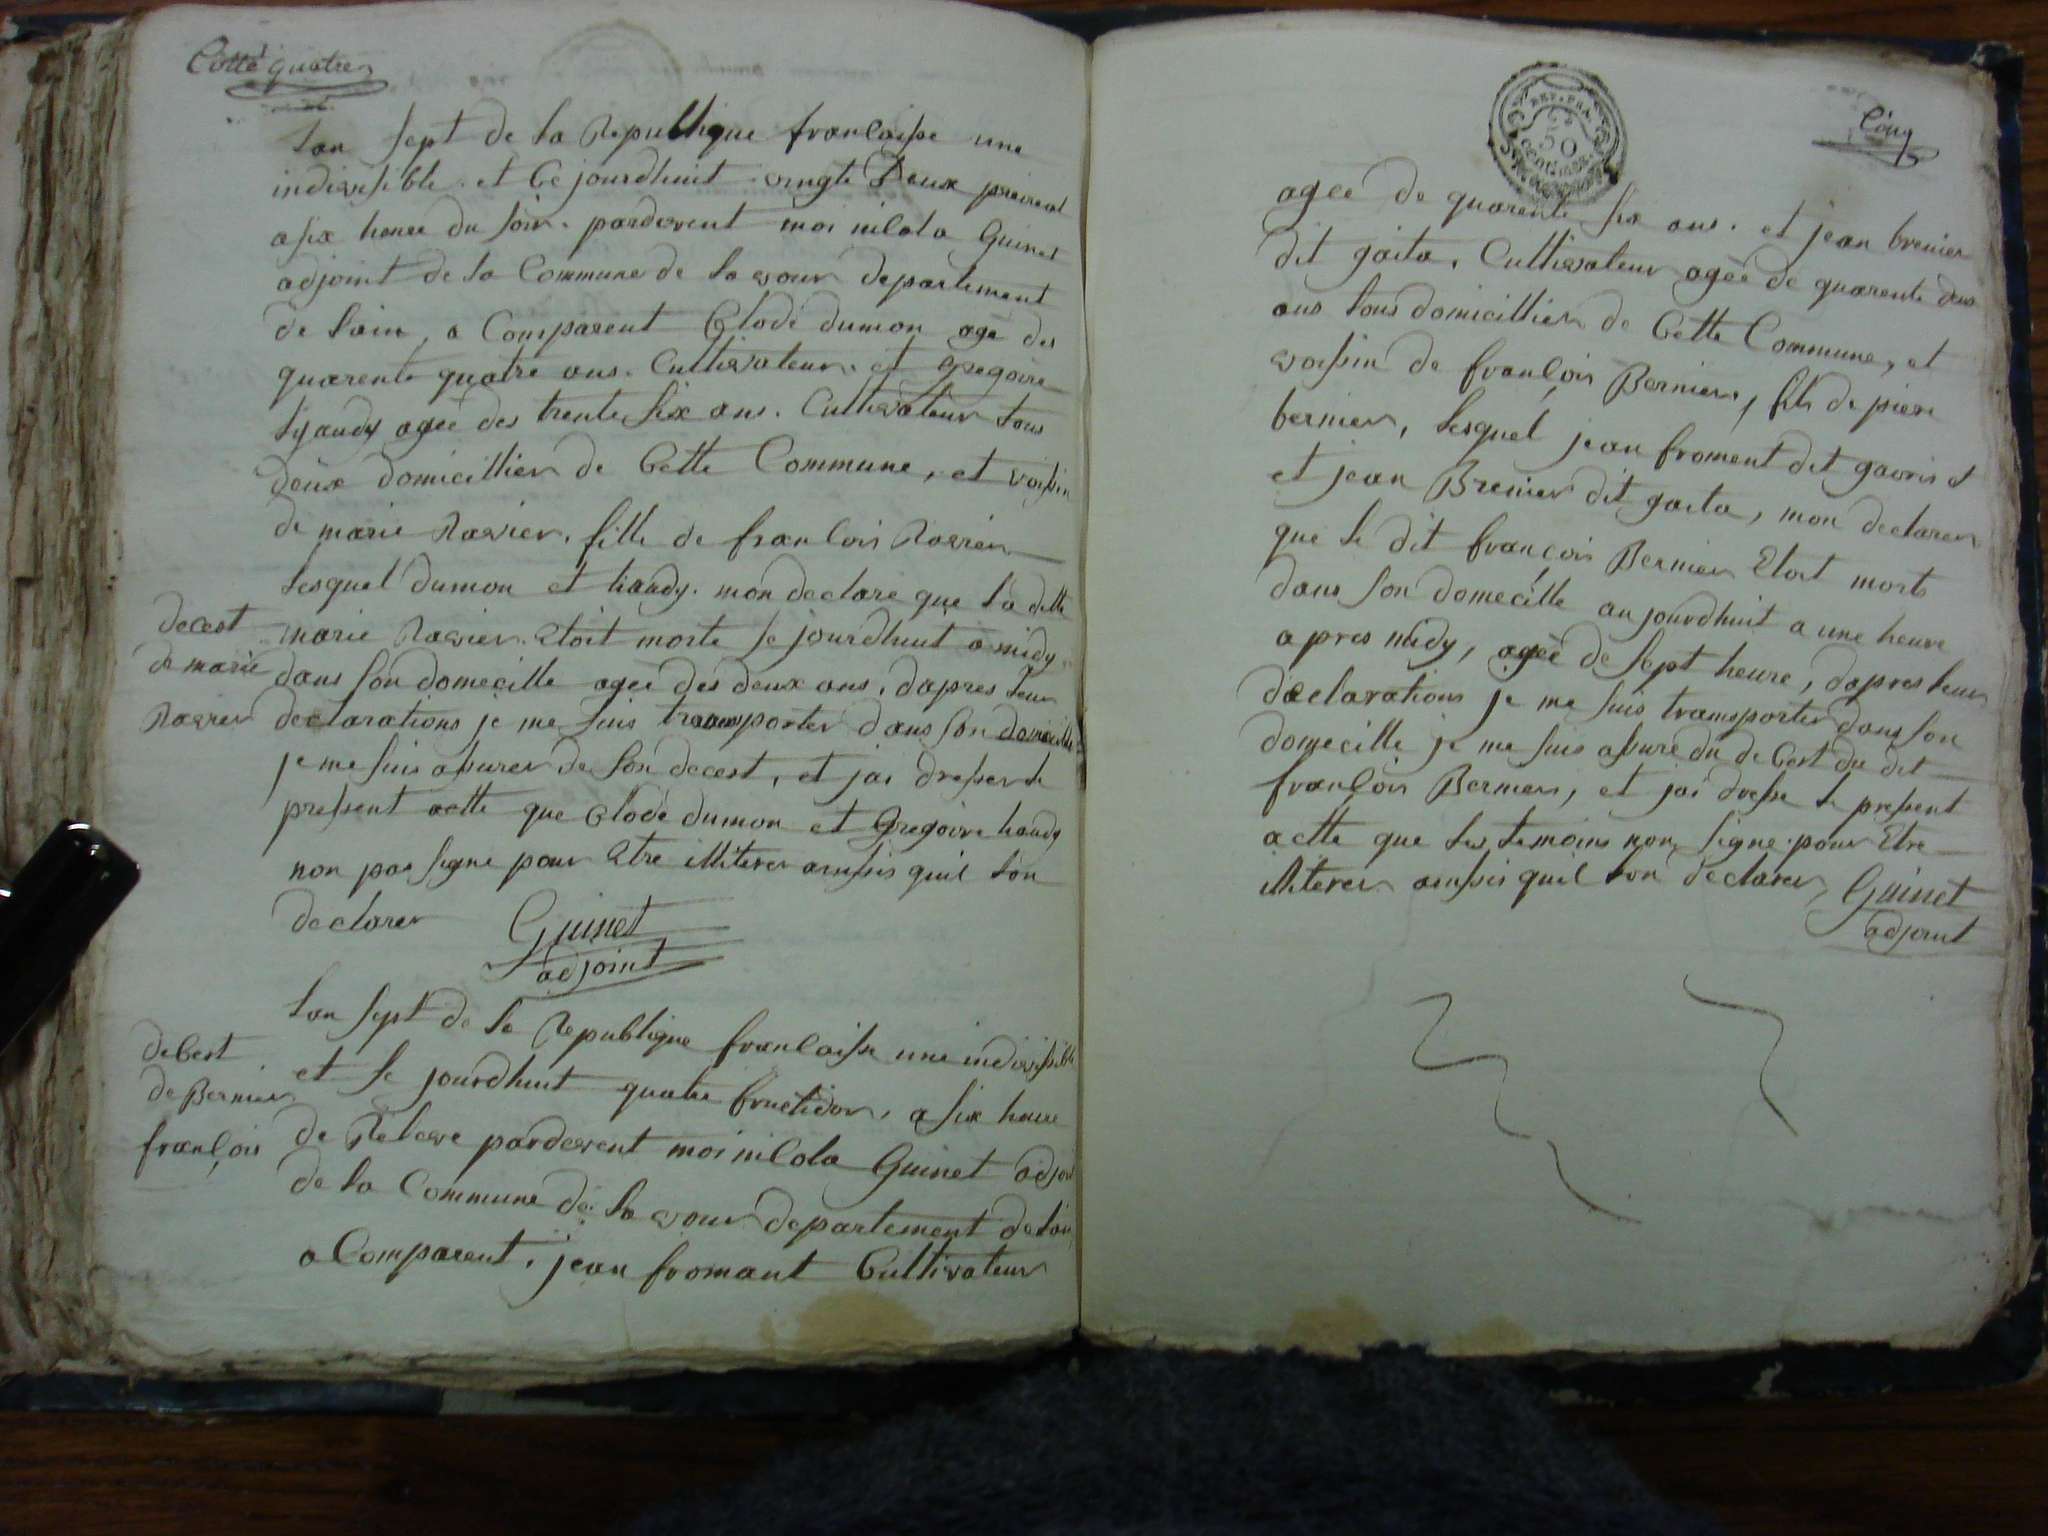 Cotté quatre
lan sept de la Republique franCaisse une
indivisible et Ce jourdhuit vingte Deux preireal
a six heure du soir. pardevent moi niCola Guinet
adjoint de la Commune de la vour departement
de lain, a Comparent Clode dumon agé des
quarente quatre ans. Cultivateur. et gregoire
liaudy ageé des trente six ans. Cultivateur tous
deux domicillier de Cette Commune, et voisin
de marie Ravier. fille de franCois Ravier
lesquel dumon et liaudy. mon declare que la ditte
marie Ravier. Etoit morte le jourdhuit a midy
dans son domecille ageé des deux ans. dapres leur
declarations je me suis transporter dans son domecille
je me suis assurer de son decest, et jai dresser le
pressent actte que Clode dumon et Gregoire liaudy
non pas signe pour Etre illiterer ainssis quil lon
declarer Guinet
adjoint
decest
de marie
Ravier
lan sept de la Republique franCaisse une indivissible
et le jourdhuit quatre fructidor, a six heure
de Releve pardevent moi niCola Guinet adjoint
de la Commune de la vour departement de lain,
a Comparent. jean fromant Cultivateur
deCest
de Bernier
françois
Cinq
REP. FRA.
50
CENTIMES
ageé de quarente six ans. et jean brenier
dit gaita. Cultivateur ageé de quarente deus
ans tous domicillier de Cette Commune, et
voissin de françois Bernier, fils de piere
bernier, lesquel jean froment dit gavris et
et jean Brenier dit gaita, mon declarer
que le dit françois Bernier Etoit morts
dans son domecille aujourdhuit a une heure
apres midy, ageé de sept heure, dapres leur
declarations je me suis transporter dans son
domecille je me suis assure du deCest du dit
françois Bernier, et jai dresse le pressent
actte que les temoins non signe pour Etre
illiterer ainssis quil lon declarer, Guinet
adjoint